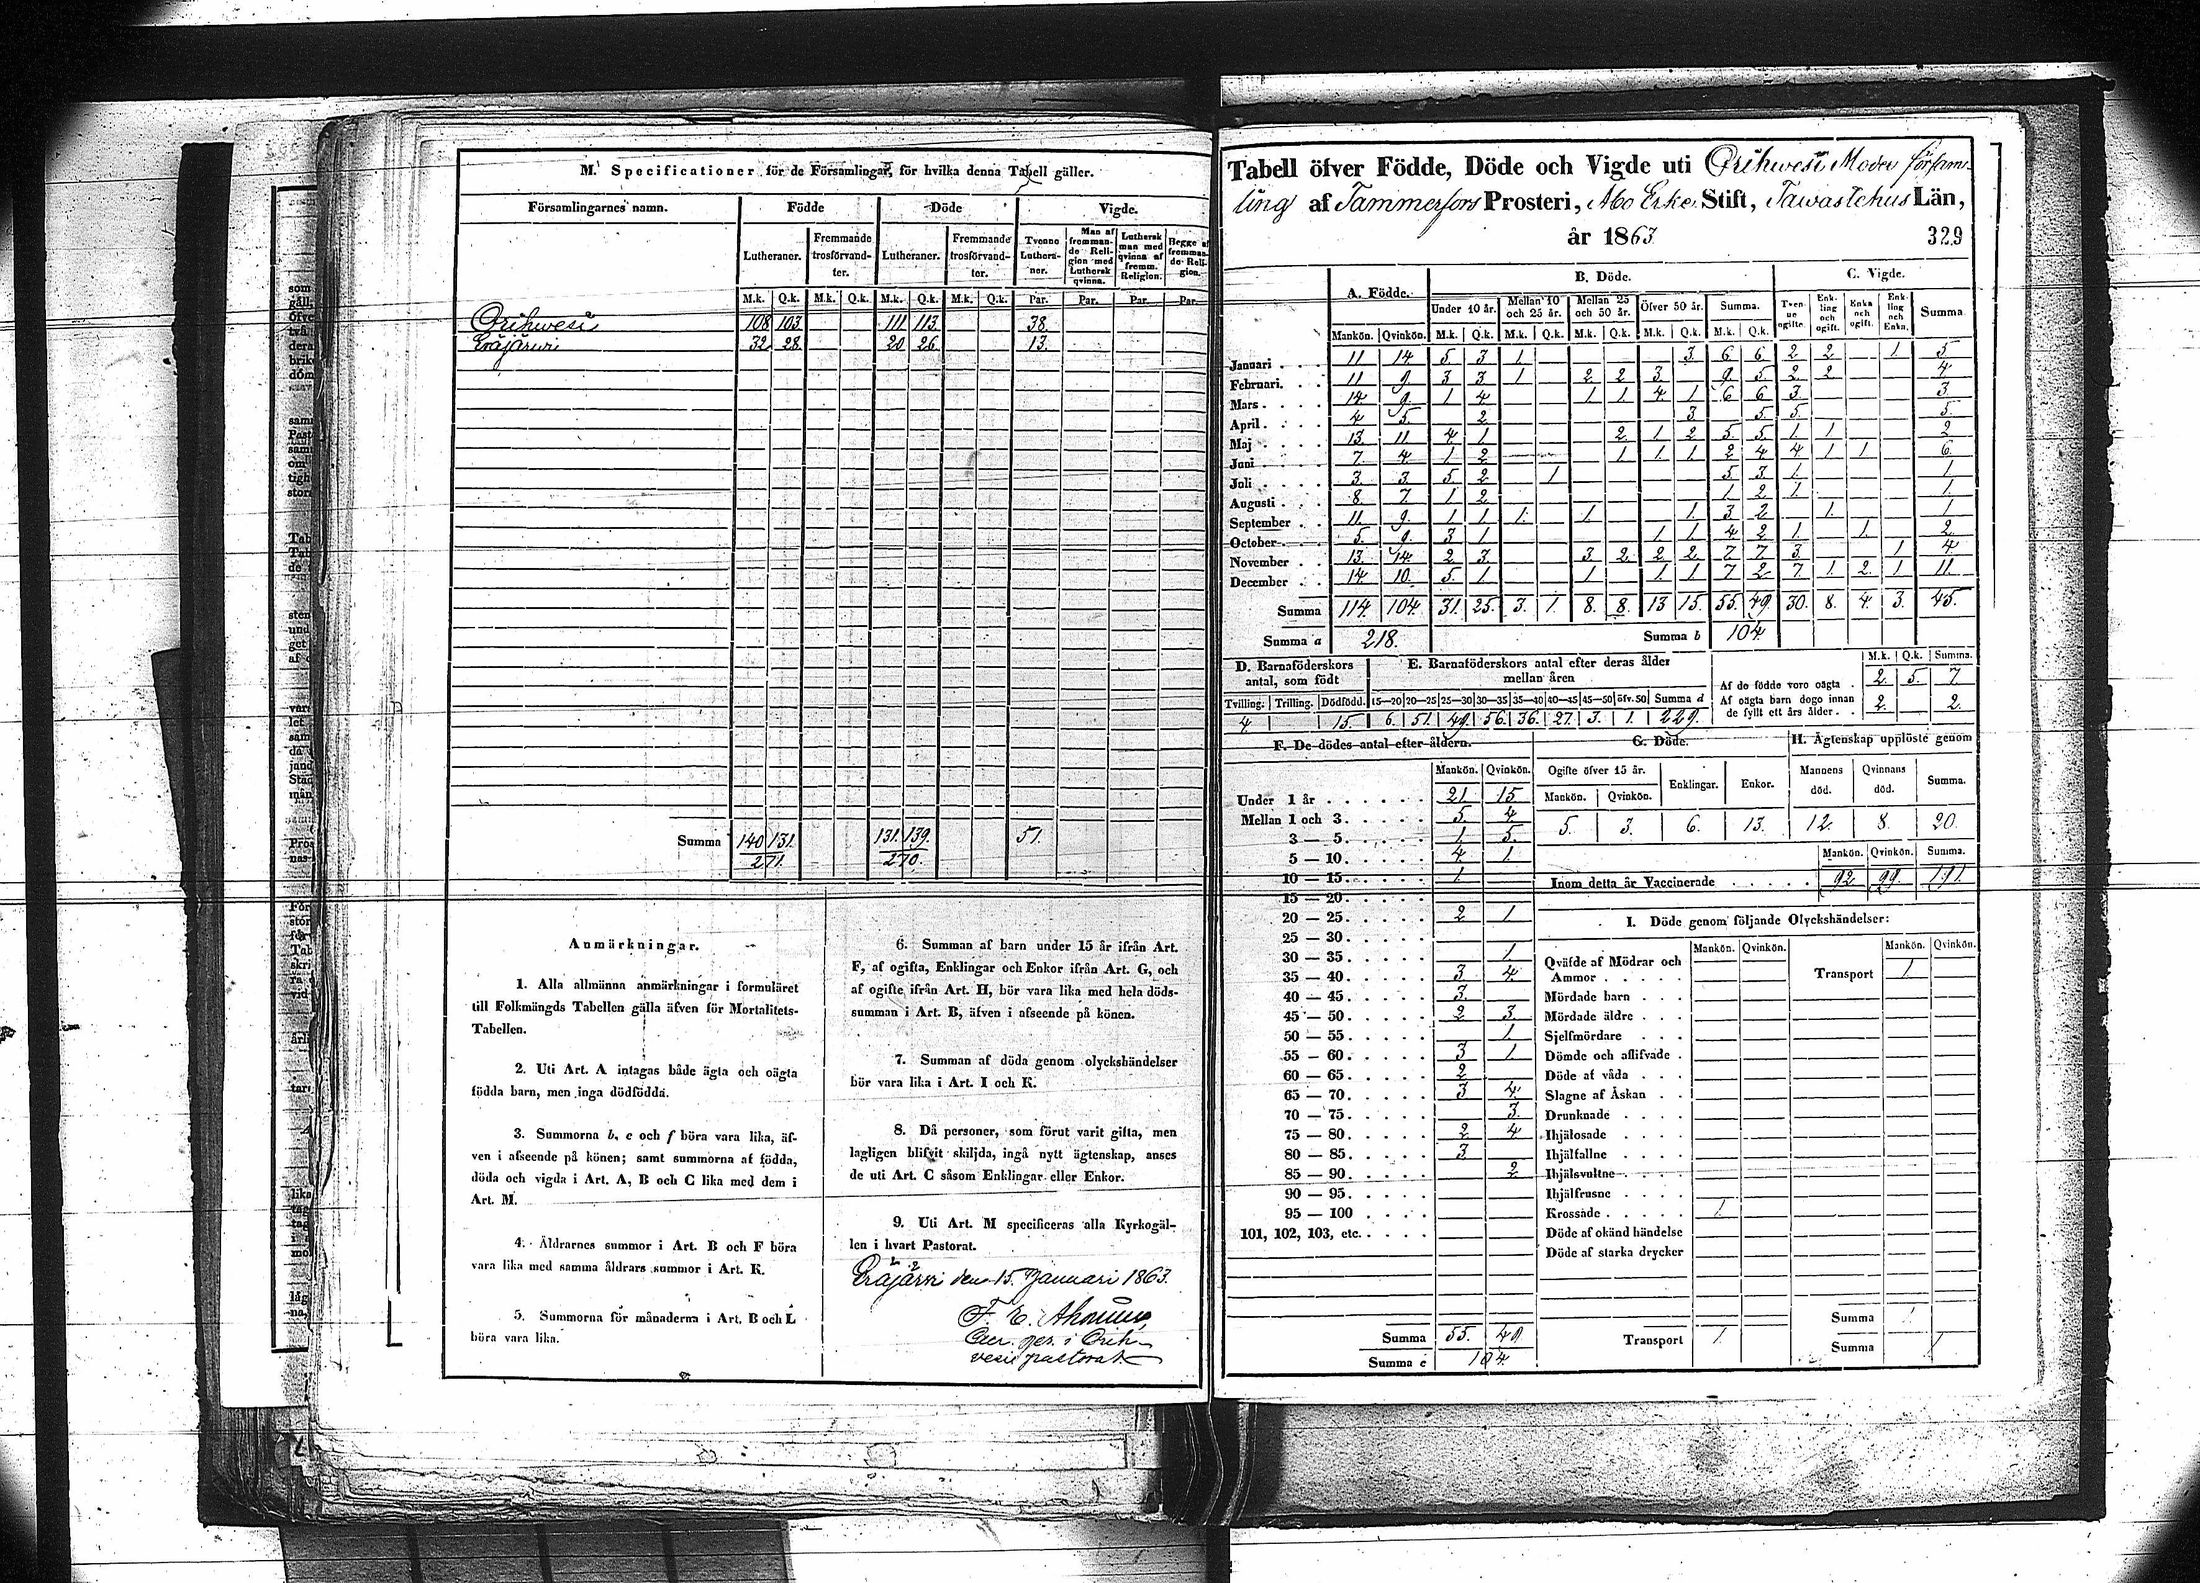 M. Specificationer för de Församlingar, för hvilka denna Tabell gäller.
Församlingarnes namn. Födde Döde Vigde.
Lutheraner. Fremmande trosförvandter. Lutheraner. Fremmande trosförvandter. Tvenne Lutheraner. Man af fremmande Religion med Luthersk qvinna. Luthersk man med qvinna af fremm. Religion. Begge af fremmande Religion.
M.k. Q.k. M.k. Q.k. M.k. Q.k. M.k. Q.k. Par. Par. Par. Par.
Orihwesi 108 103 111 113 38
Eräjärwi 32 28 20 26 13.
Summa 140 131 131. 139. 51.
271. 270.
Anmärkningar.
1. Alla allmänna anmärkningar i formuläret
till Folkmängds Tabellen gälla äfven för Mortalitets-
Tabellen.
2. Uti Art. A intagas både ägta och oägta
födda barn, men inga dödfödda.
3. Summorna b, c och f böra vara lika, äf-
ven i afseende på könen; samt summorna af födda,
döda och vigda i Art. A, B och C lika med dem i
Art. M.
4. Åldrarnes summor i Art. B och F böra
vara lika med samma åldrars summor i Art. K.
5. Summorna för månaderna i Art. B och L
böra vara lika.
6. Summan af barn under 15 år ifrån Art.
F, af ogifta, Enklingar och Enkor ifrån Art. G, och
af ogifte ifrån Art. H, bör vara lika med hela döds-
summan i Art. B, äfven i afseende på könen.
7. Summan af döda genom olyckshändelser
bör vara lika i Art. I och K.
8. Då personer, som förut varit gifta, men
lagligen blifvit skiljda, ingå nytt ägtenskap, anses
de uti Art. C såsom Enklingar eller Enkor.
9. Uti Art. M specificeras alla Kyrkogäl-
len i hvart Pastorat.
Eräjärwi den 15. Januari 1863.
F. E.
i Orih-
vesi pastorat.
Tabell öfver Födde, Döde och Vigde uti Orihwesi Moder församl-
ling af Tammerfors Prosteri, Åbo Erke Stift, Tawastehus Län,
år 1863 329
A. Födde. B. Döde. C. Vigde.
Under 10 år. Mellan 10 och 25 år. Mellan 25 och 50 år. Öfver 50 år. Summa. Tvenne ogifte. Enkling och ogift. Enka och ogift. Enkling och Enka. Summa
Mankön. Qvinkön. M.k. Q.k. M.k. Q.k. M.k. Q.k. M.k. Q.k. M.k. Q.k.
Januari 11 14 5 3 1. 3. 6 6. 2 2 1 5.
Februari. 11 9. 3 3 1 2 2 3. 9. 5 2. 2 4
Mars 14 9. 1 4 1 1 4 1 6 6 3 3.
April. 4 5. 2 3 5 5. 5.
Maj 13. 11 4 1 2 1 2 5. 5. 1 1 2
Juni 7 4. 1 2 1 1. 1 2 4 4 1 1 6.
Juli 3. 3. 5 2 1 5 3 1. 1.
Augusti 8. 7. 1 2 1 2 1. 1.
September 11. 9. 1 1 1. 1. 1. 3 2 1. 1
October 5. 9. 3 1 1 1 4 2 1. 1. 2.
November 13. 14. 2 3. 3 2. 2 2. 7 7 3. 1 4
December 14 10. 5. 1 1 1 1 7 2 7. 1. 2. 1 11.
Summa 114. 104. 31. 25. 3. 1. 8. 8. 13 15. 55. 49. 30. 8. 4. 3. 45.
Summa a 218. Summa b 104.
D. Barnaföderskors antal, som födt E. Barnaföderskors antal efter deras ålder mellan åren
Tvilling. Trilling. Dödfödd. 15—20 20—25 25—30 30—35 35—40 40—45 45—50 öfv. 50 Summa d
4 15. 6. 51. 49. 56. 36. 27. 3. 1. 229.
M.k. Q.k. Summa.
Af de födde voro oägta 2. 5. 7
Af oägta barn dogo innan de fyllt ett års ålder 2. 2.
F. De dödes antal efter åldern. G. Döde. H. Ägtenskap upplöste genom
Mankön. Qvinkön. Ogifte öfver 15 år. Enklingar. Enkor. Mannens död. Qvinnans död. Summa.
Mankön. Qvinkön.
5. 3. 6. 13. 12. 8. 20.
Mankön. Qvinkön. Summa.
Inom detta år Vaccinerade 92. 99. 191.
Under 1 år 21. 15
Mellan 1 och 3. 5. 4
3 — 5. 1. 5.
5 — 10. 4 1
10 — 15. 1.
15 — 20.
20 — 25. 2 1
25 — 30.
30 — 35. 1.
35 — 40. 3 4
40 — 45. 3.
45 — 50. 2 3.
50 — 55. 1
55 — 60. 3 1
60 — 65. 2
65 — 70. 3 4.
70 — 75. 3.
75 — 80. 2 4
80 — 85. 3
85 — 90. 2
90 — 95.
95 — 100
101, 102, 103, etc.
Summa 55. 49.
Summa c 104.
I. Döde genom följande Olyckshändelser:
Mankön. Qvinkön. Mankön. Qvinkön.
Qväfde af Mödrar och Ammor Transport 1.
Mördade barn
Mördade äldre
Sjelfmördare
Dömde och aflifvade
Döde af våda
Slagne af Åskan
Drunknade
Ihjälosade
Ihjälfallne
Ihjälsvultne
Ihjälfrusne
Krossade 1.
Döde af okänd händelse
Döde af starka drycker
Summa 1.
Transport 1. Summa 1